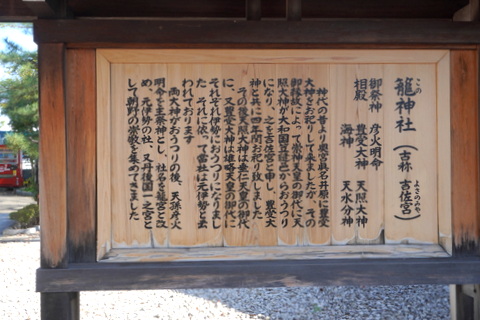 籠神社(古称 吉佐宮)
この
よさのみや
御祭神 彦火明命
相殿 豊受大神 天照大神
海神 天水分神
神代の昔より奥宮眞名井原に豊受
大神をお祀りして来ましたが、その
御縁故によって崇神天皇の御代に天
照大神が大和国笠縫邑からおうつり
になり、之を吉佐宮と申し、豊受大
神と共に四年間お祀り致しました
その後天照大神は垂仁天皇の御代
に、又豊受大神は雄略天皇の御代に
それぞれ伊勢におうつりになりまし
た。それに依って當社は元伊勢と云
われております
両大神がおうつりの後、天孫彦火
明命を主祭神とし、社名を籠宮と改
め、元伊勢の社、又丹後国一之宮と
して朝野の崇敬を集めてきました